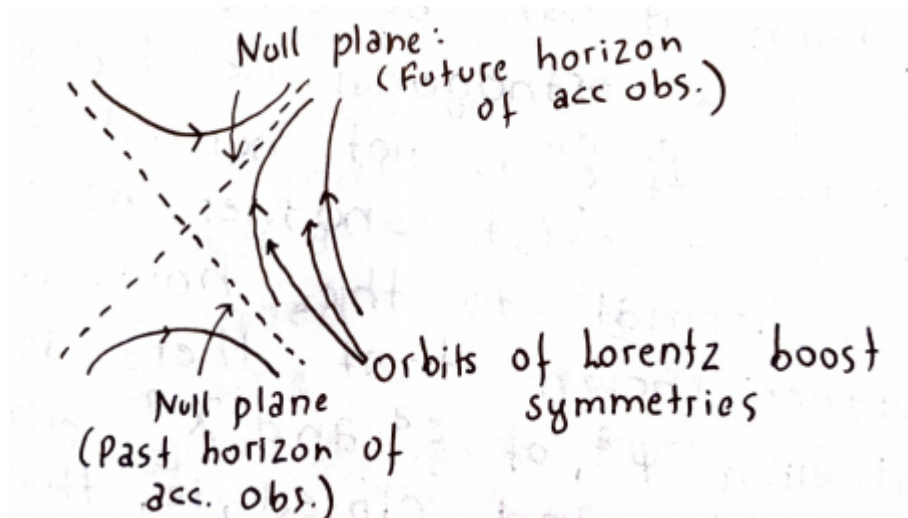 Null plane:
(Future horizon
of acc obs.)
orbits of Lorentz boost
symmetries
Null plane
(Past horizon of
acc. obs.)